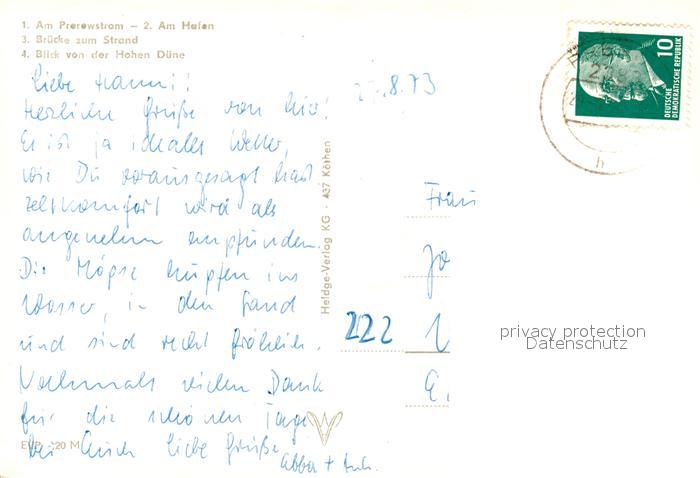 1. Am Prerowstrom – 2. Am Hafen
3. Brücke zum Strand
4. Blick von der Hohen Düne
.8.73
Liebe Hanni!
Herzliche Grüße von hier!
Es ist ja ideales Wetter,
wie Du vorausgesagt hast
Zeltkomfort wird als
angenehm empfunden.
Die Möpse hüpfen ins
Wasser, in den Sand
und sind recht fröhlich.
Nochmals vielen Dank
für die schönen Tage
bei Euch liebe Grüße
Heldge-Verlag KG · 437 Köthen
EVP 0,20 M
10
DEUTSCHE
DEMOKRATISCHE REPUBLIK
Frau
222
privacy protection
Datenschutz